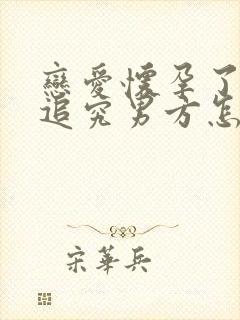 戀愛懷孕了
追究男方怎
宋華兵